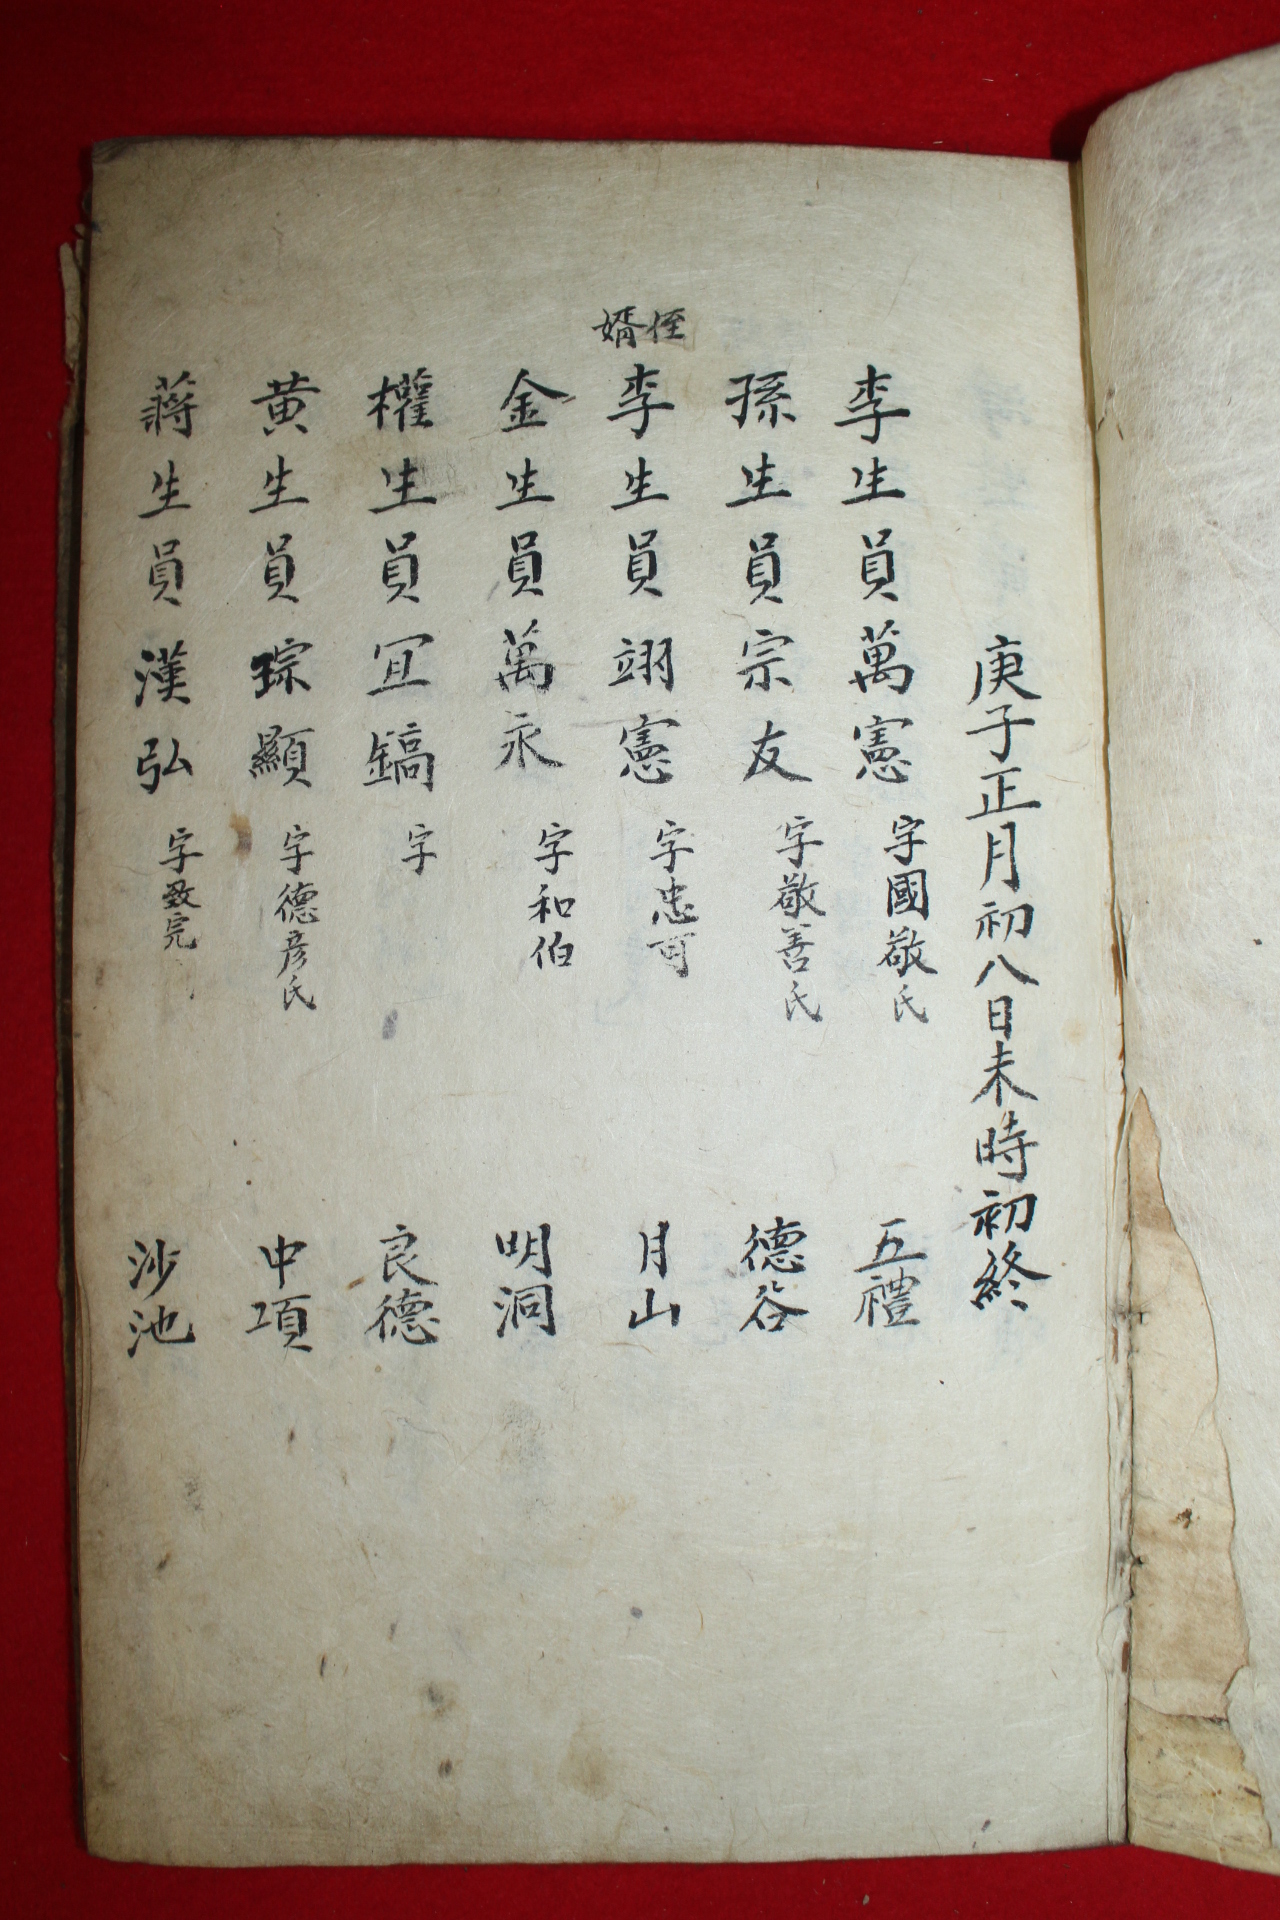 庚子正月初八日未時初終
李生員萬憲 字國敬氏 五禮
孫生員宗友 字敬善氏 德谷
侄婿 李生員翊憲 字忠可 月山
金生員萬永 字和伯 明洞
權生員宜鎬 字 良德
黃生員琮顯 字德彦氏 中項
蔣生員漢弘 字致完 沙池